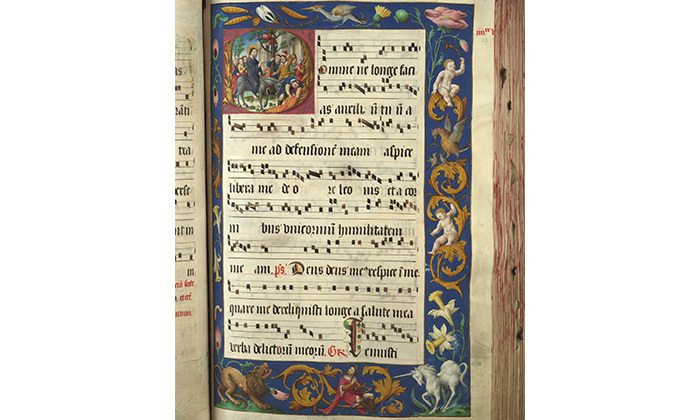 as
tra
Domine ne longe faci
as auxiliū tuū a
me ad defensionē meam aspice
libera me de o re leo nis et a cor
ni bus unicorniū humilitatem
me am. ps. Deus deus me respice ī me
quare me dereliquisti longe a salute mea
verba delictorū meorū. Gr. Tenuisti